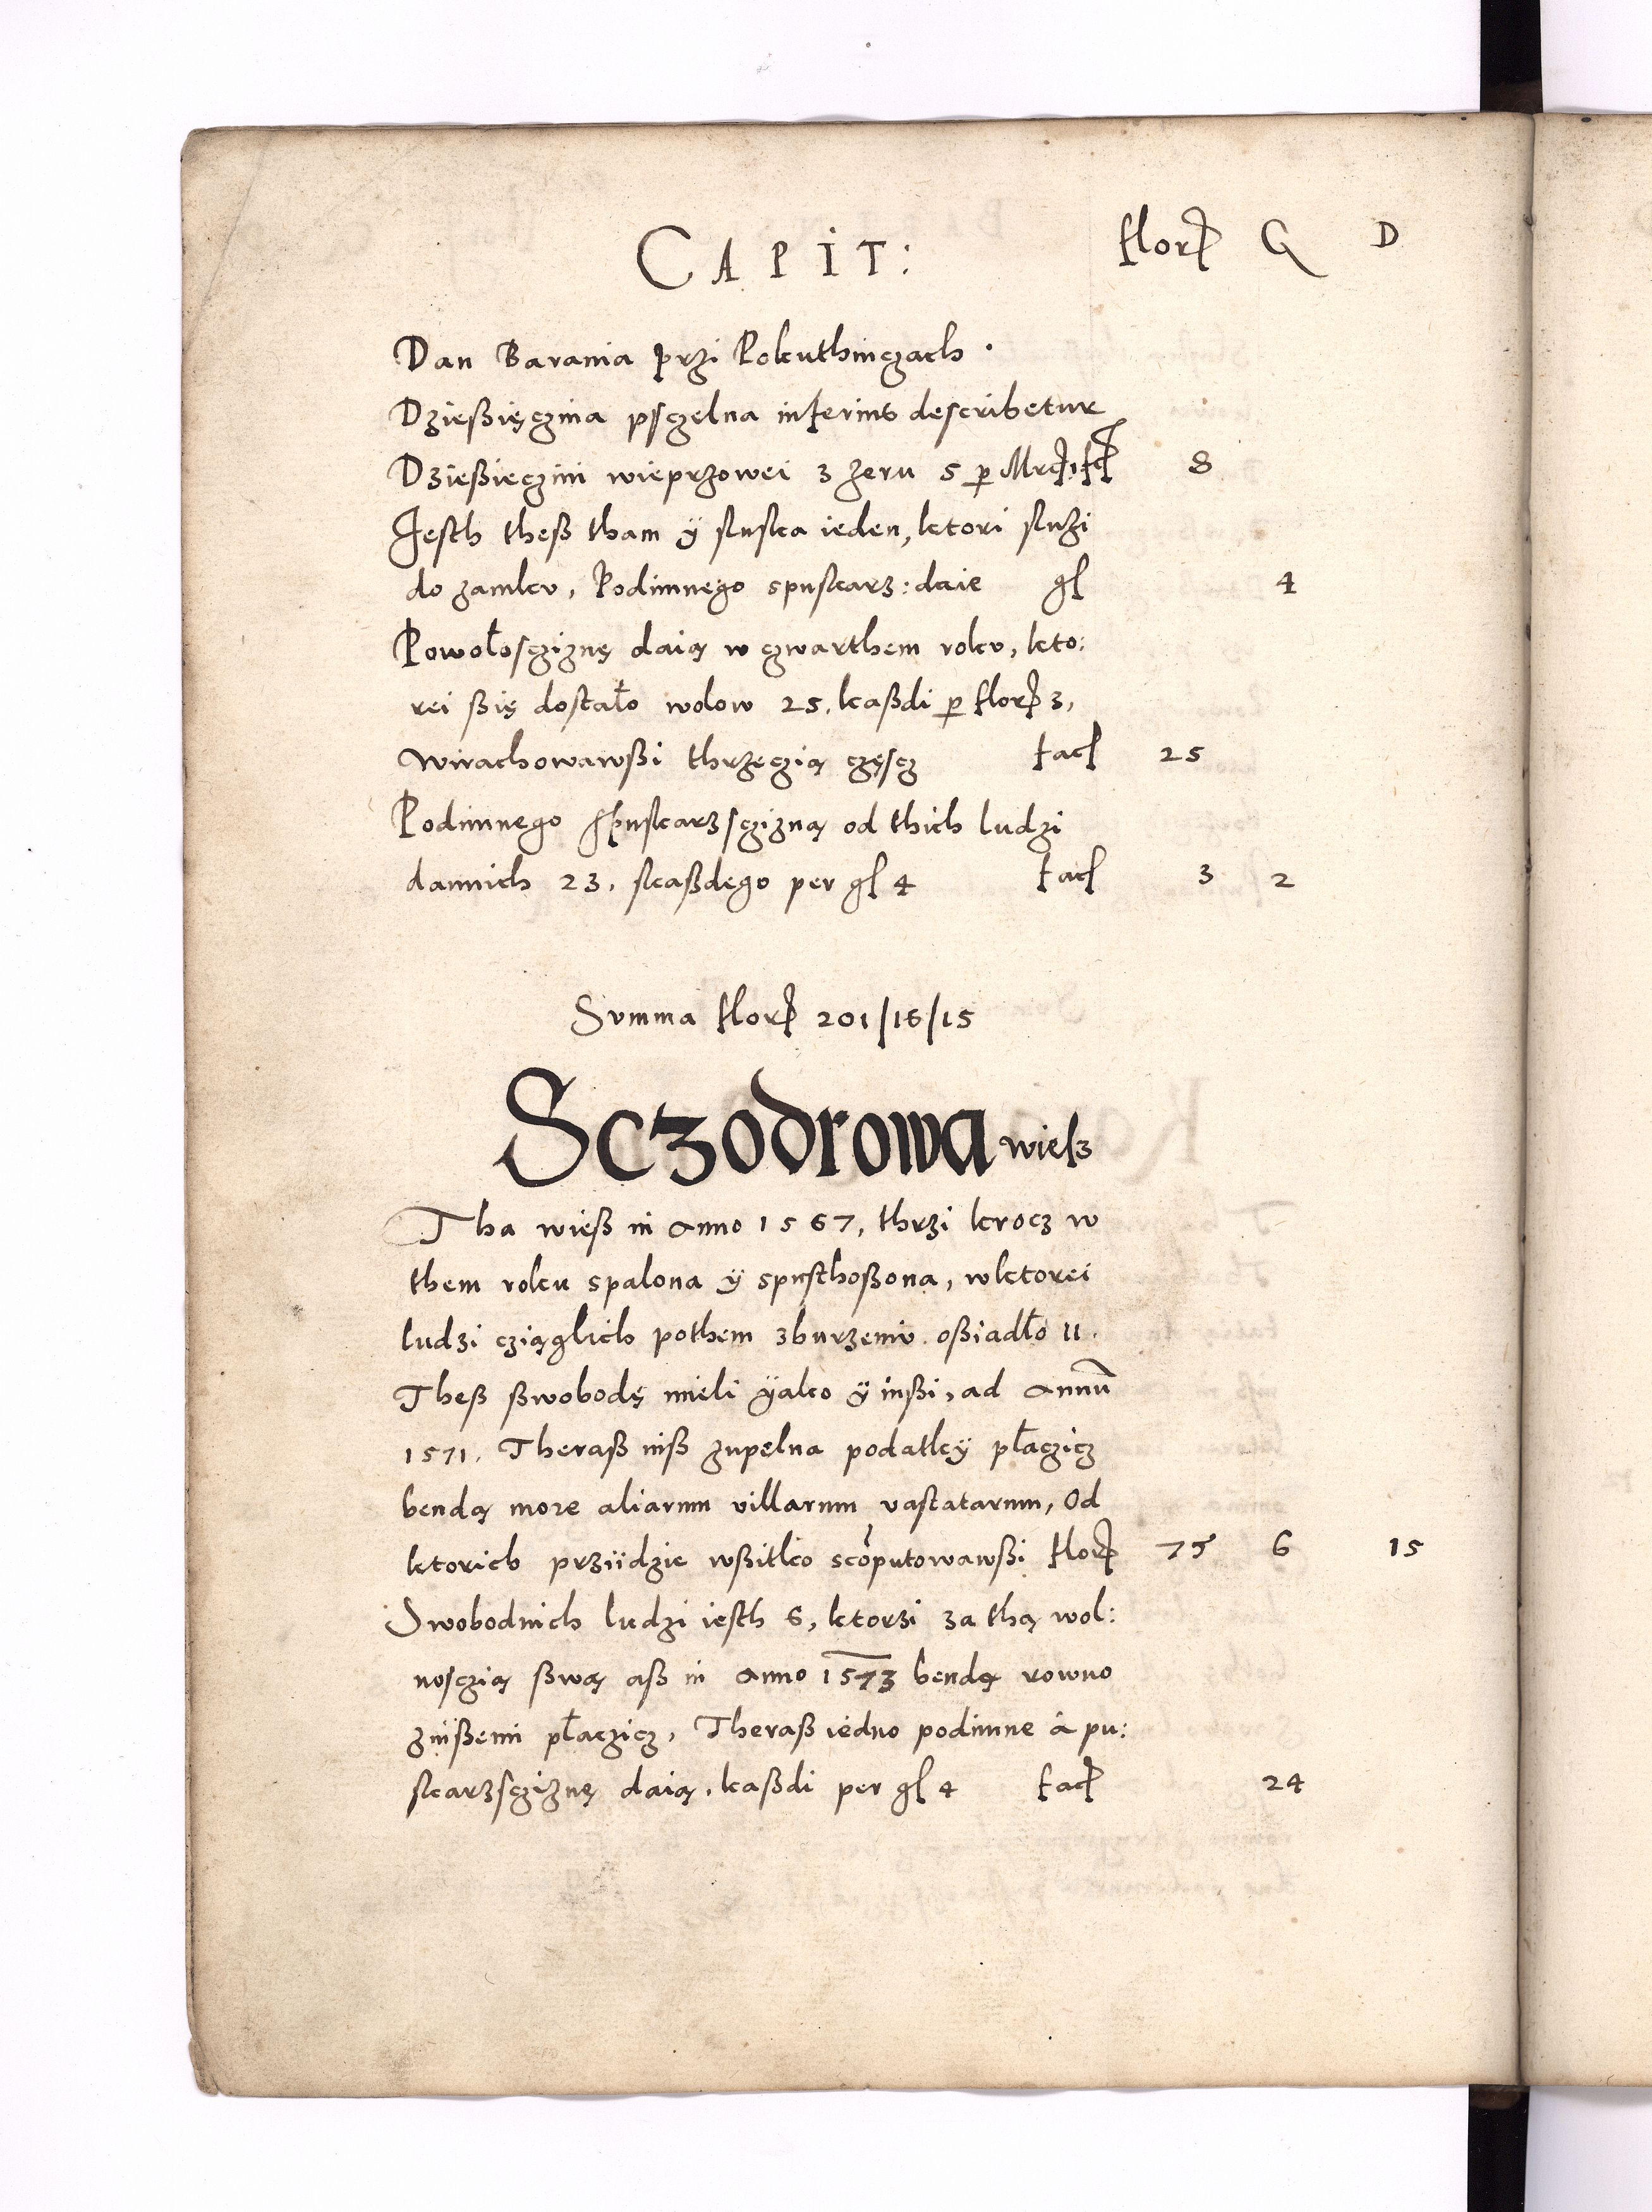 CAPIT: flor G D
Dan Barania przi Pokuthniczach.
Dzießięczina psczelna inferius describetur
Dzießieczini wieprzowei z żeru 5 per Mrc 1 fc 8
Jesth theß tham ÿ sluska ieden, ktori služi
do zamku, Podimnego spuskarz: daie gl 4
Powołoscziznę daią w czwarthem roku, kto:
rei ßię dostało wolow 25, kaßdi per flor 3,
wirachowawßi thrzeczią częscz fac 25
Podimnego spuskarzscizną od thich ludzi
dannich 23, skaßdego per gl 4 fac 3 2
Summa flor 201/16/15
Sczodrowa wiesz
Tha wieß in Anno 1567, thrzi krocz w
them roku spalona ÿ spusthoßona, wktorei
ludzi cziąglich pothem zburzeniu oßiadło 11.
Theß ßwobodę mieli ÿako ÿ inßi, ad Annū
1571. Theraß iuß zupelna podatkÿ płaczicz
bendą more aliarum villarum vastatarum, Od
ktorich prziidzie wßitko scōputowawßi flor 75 6 15
Swobodnich ludzi iesth 6, ktorzi za thą wol:
nosczią ßwą aß in Anno 1573 bendę rowno
zinßemi płaczicz, Theraß iedno podimne à pu:
skarzsciznę daią, kaßdi per gl 4 fac 24